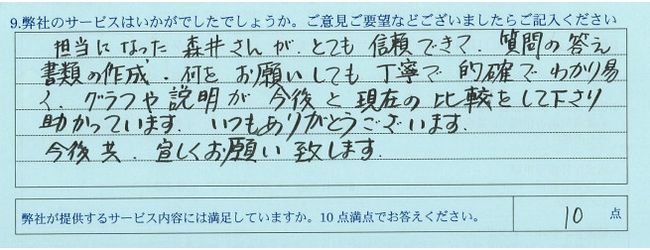 9.弊社のサービスはいかがでしたでしょうか。ご意見ご要望などございましたらご記入ください
担当になった 森井さんが、とても 信頼できて、質問の答え
書類の作成・何を お願いしても 丁寧で 的確で わかり易
く、グラフや説明が 今後と 現在の 比較をして下さり
助かっています。いつもありがとうございます。
今後共、宜しくお願い 致します。
弊社が提供するサービス内容には満足していますか。10点満点でお答えください。 10 点